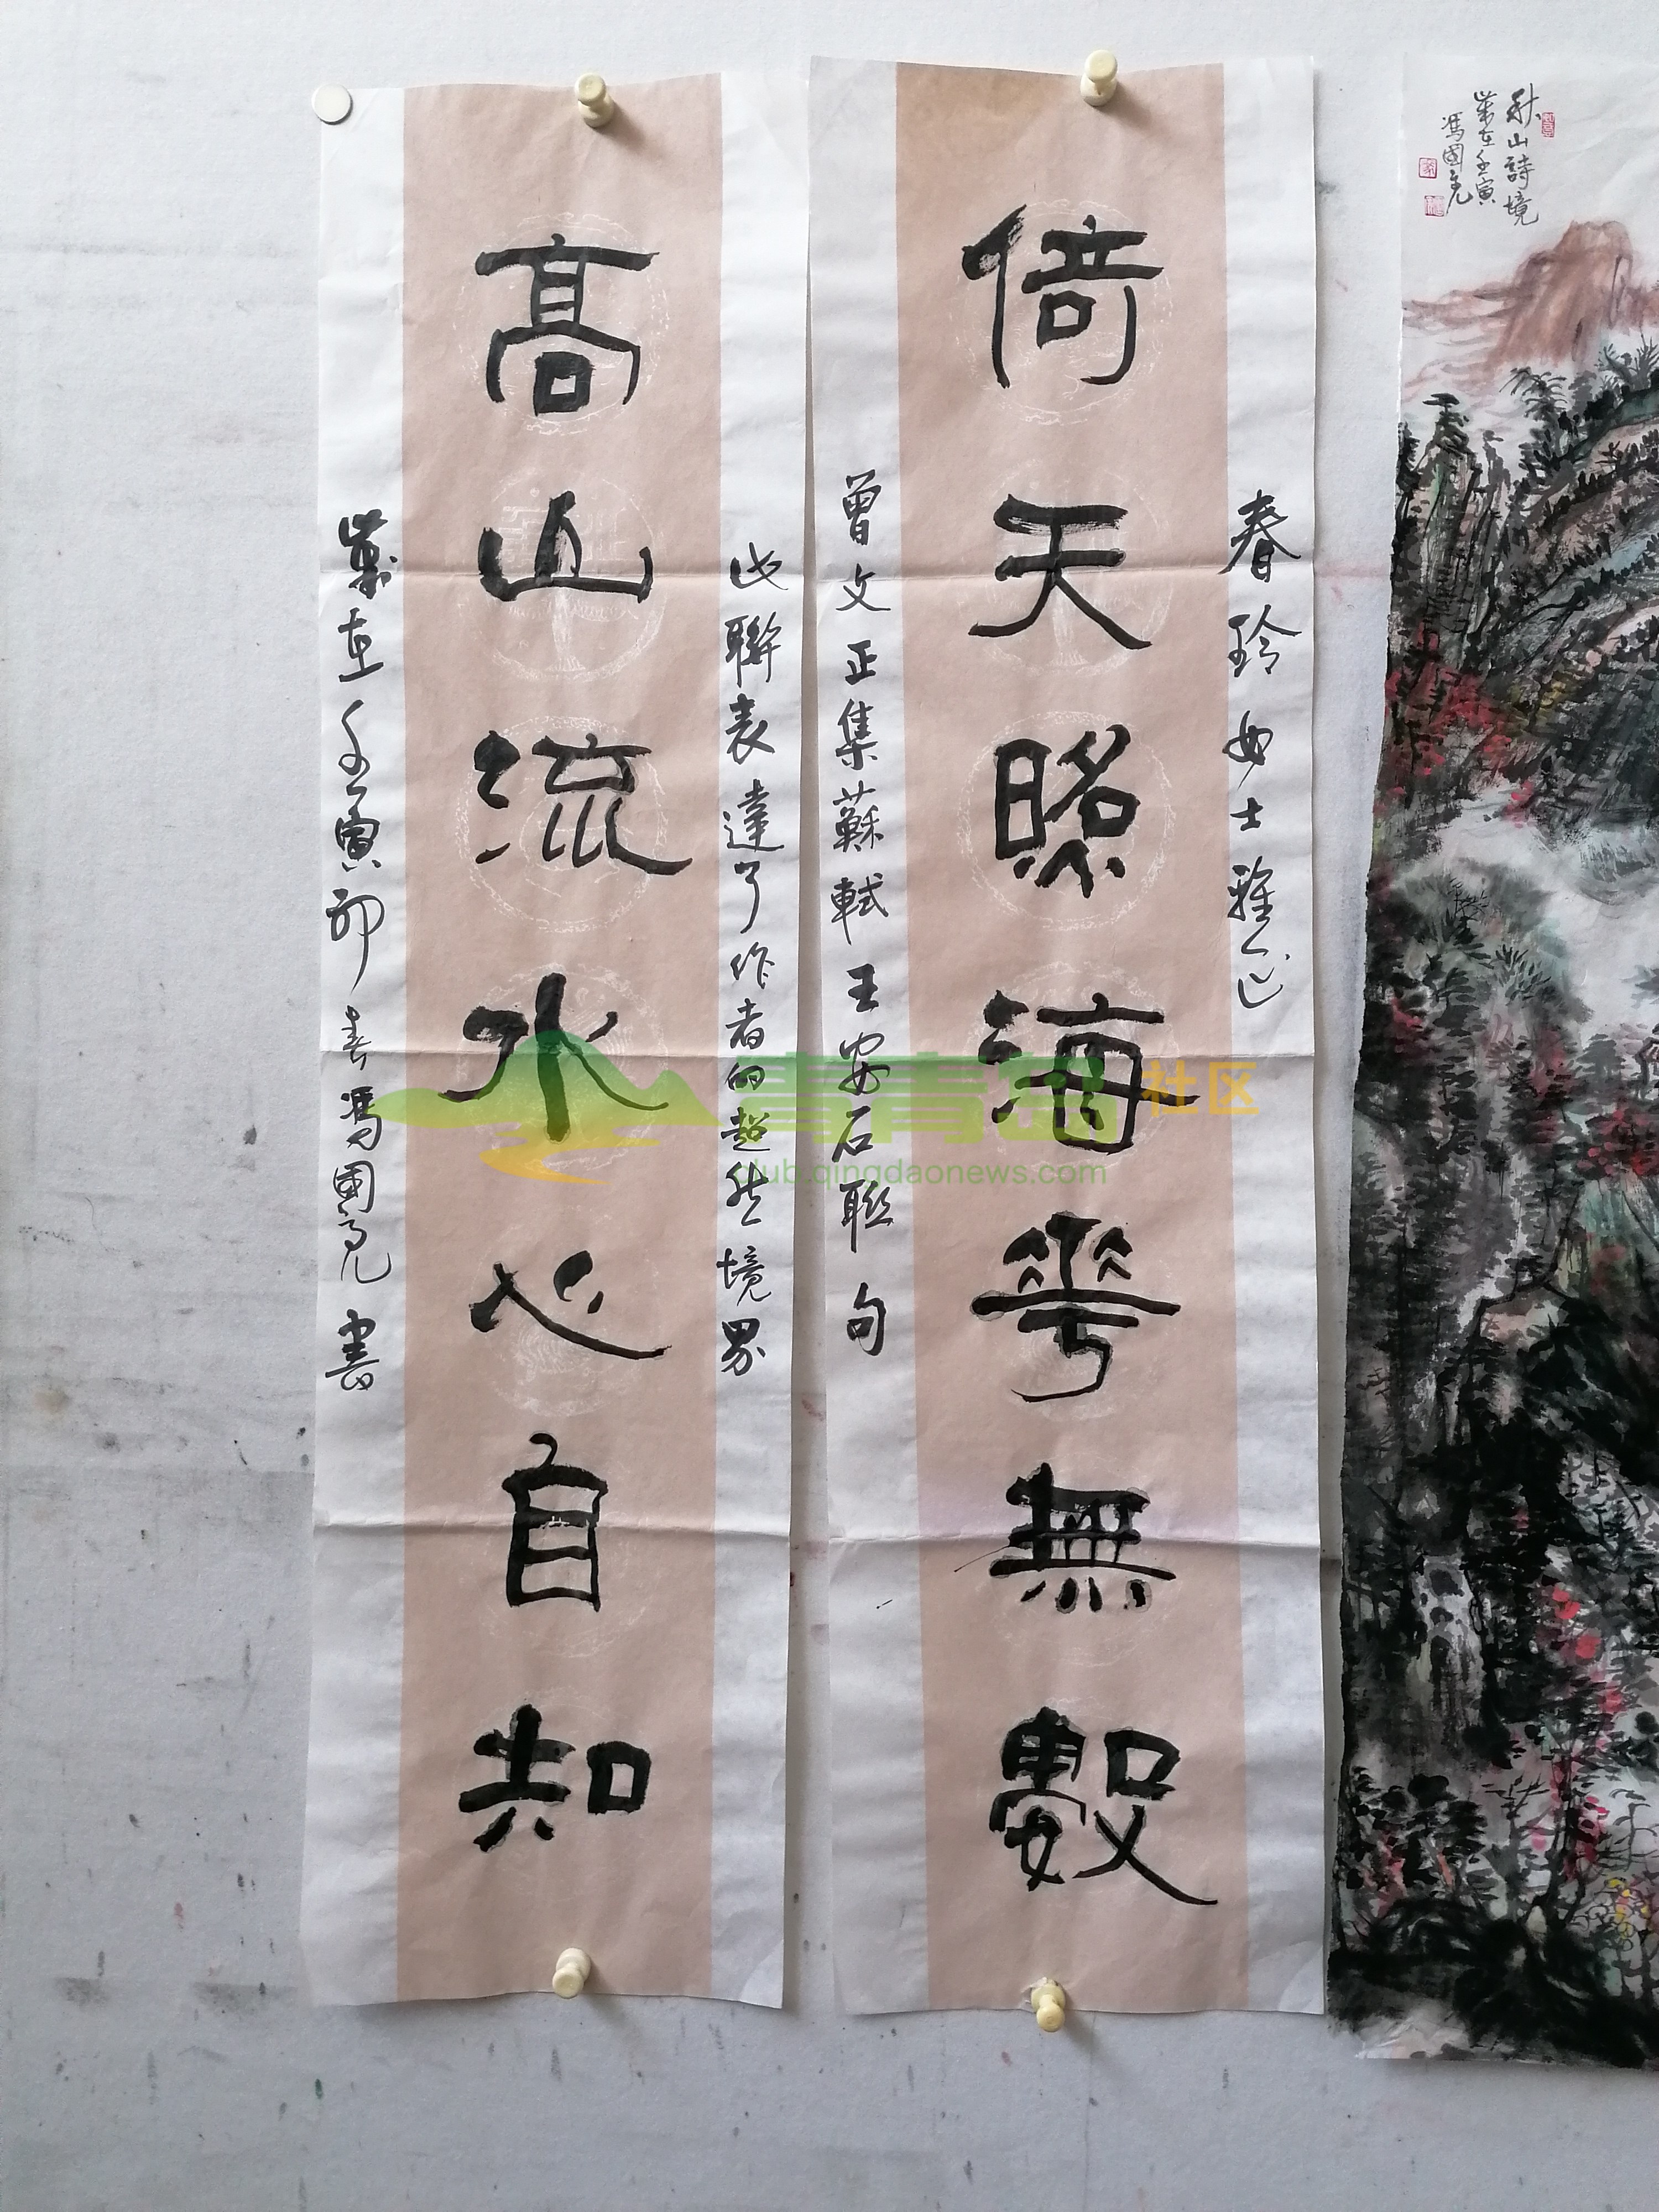 春玲女士雅正
倚天照海花無數
曾文正集蘇軾王安石聯句
此聯表達了作者的超然境界
高山流水心自知
歲在壬寅初春馮國亮書
秋山詩境
歲在壬寅
馮國亮
青青岛社区
club.qingdaonews.com